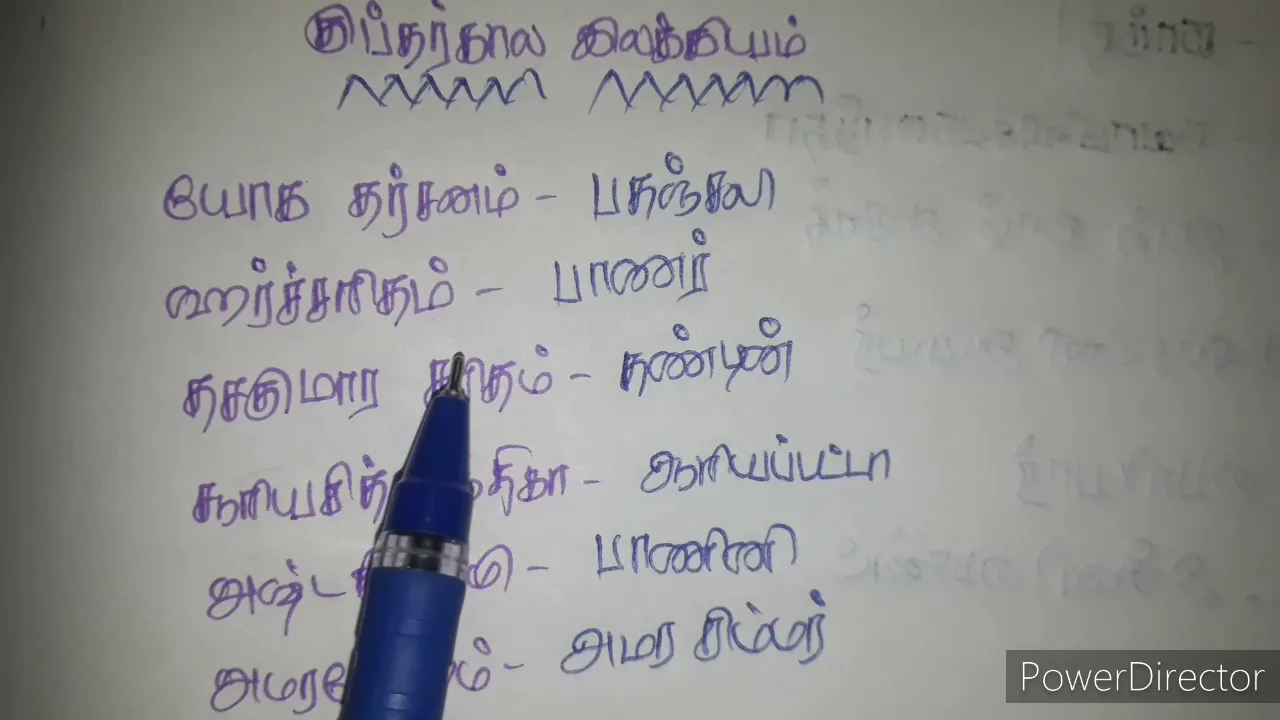 குப்தர்கால இலக்கியம்
யோக தர்சனம் - பதஞ்சலி
ஹர்ச்சரிதம் - பாணர்
தசகுமார சரிதம் - தண்டின்
- ஆரியப்பட்டா
- பாணினி
- அமர சிம்மர்
PowerDirector